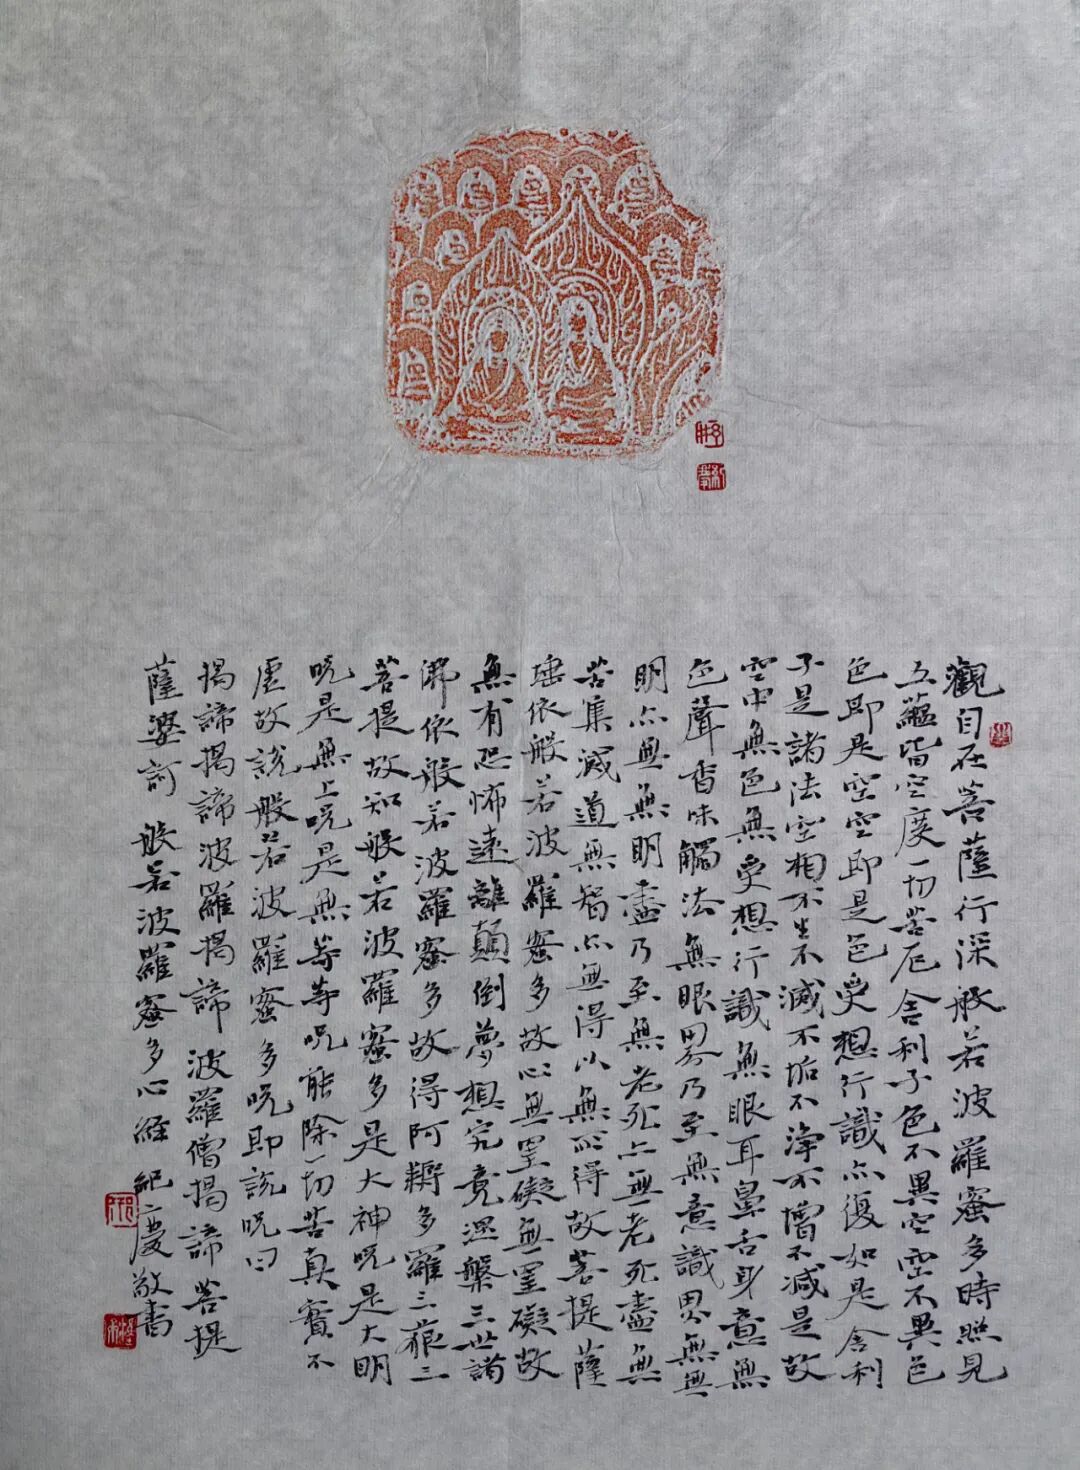 觀自在菩薩行深般若波羅蜜多時照見
五蘊皆空度一切苦厄舍利子色不異空空不異色
色即是空空即是色受想行識亦復如是舍利
子是諸法空相不生不滅不垢不淨不增不減是故
空中無色無受想行識無眼耳鼻舌身意無
色聲香味觸法無眼界乃至無意識界無無
明亦無無明盡乃至無老死亦無老死盡無
苦集滅道無智亦無得以無所得故菩提薩
埵依般若波羅蜜多故心無罣礙無罣礙故
無有恐怖遠離顛倒夢想究竟涅槃三世諸
佛依般若波羅蜜多故得阿耨多羅三藐三
菩提故知般若波羅蜜多是大神咒是大明
咒是無上咒是無等等咒能除一切苦真實不
虛故說般若波羅蜜多咒即說咒曰
揭諦揭諦波羅揭諦 波羅僧揭諦 菩提
薩婆訶 般若波羅蜜多心經 紀慶敬書